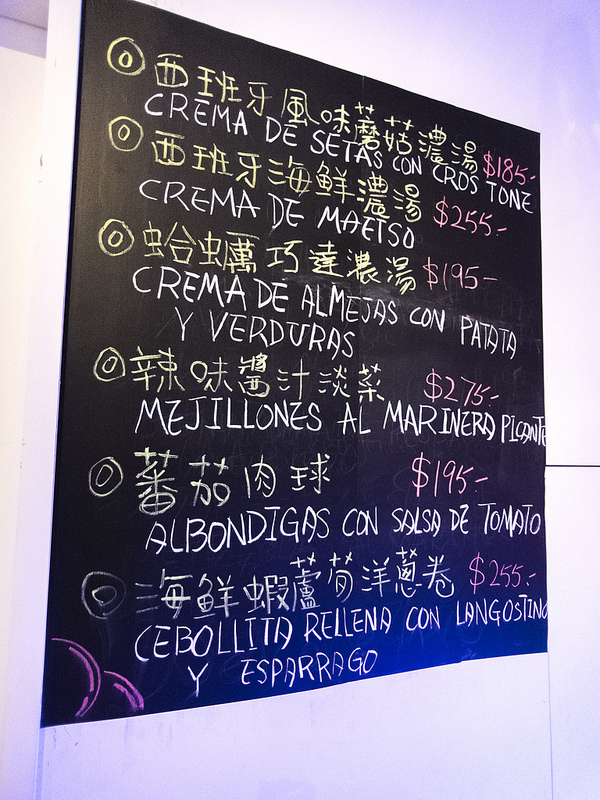 ◎西班牙風味蘑菇濃湯 $185-
CREMA DE SETAS CON CROSTONE
◎西班牙海鮮濃湯 $255.-
CREMA DE MAETSO
◎蛤蠣巧達濃湯 $195-
CREMA DE ALMEJAS CON PATATA
Y VERDURAS
◎辣味醬汁淡菜 $275.-
MEJILLONES AL MARINERA PICANTE
◎蕃茄肉球 $195.-
ALBONDIGAS CON SALSA DE TOMATO
◎海鮮蝦蘆筍洋蔥卷 $255.-
CEBOLLITA RELLENA CON LANGOSTINO
Y ESPARRAGO